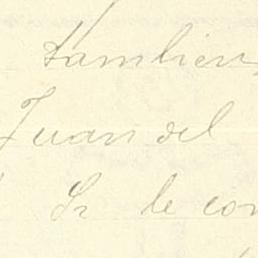 tambien
Juan del
Sr le con